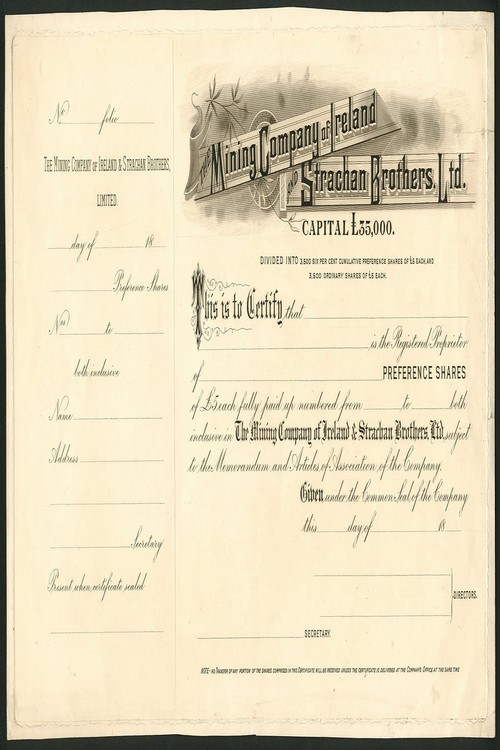 No folio
THE MINING COMPANY OF IRELAND & STRACHAN BROTHERS,
LIMITED.
day of 18
Preference Shares
Nos to
both inclusive
Name
Address
Secretary
Present when certificate sealed
THE Mining Company of Ireland
AND Strachan Brothers, Ltd.
CAPITAL £35,000.
DIVIDED INTO 3,500 SIX PER CENT CUMULATIVE PREFERENCE SHARES OF £5 EACH, AND
3,500 ORDINARY SHARES OF £5 EACH.
This is to Certify that
is the Registered Proprietor
of PREFERENCE SHARES
of £5 each fully paid up numbered from to both
inclusive in The Mining Company of Ireland & Strachan Brothers, Ltd. subject
to the Memorandum and Articles of Association of the Company.
Given under the Common Seal of the Company
this day of 18
DIRECTORS.
SECRETARY.
NOTE - NO TRANSFER OF ANY PORTION OF THE SHARES COMPRISED IN THIS CERTIFICATE WILL BE RECEIVED UNLESS THE CERTIFICATE IS DELIVERED AT THE COMPANYS OFFICE AT THE SAME TIME